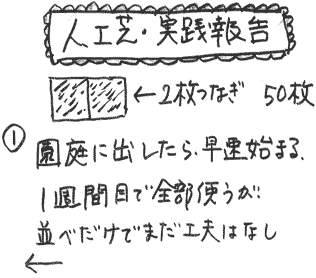 人工芝・実践報告
←2枚つなぎ 50枚
① 園庭に出したら、早速始まる、
1週間目で全部使うが、
並べだけでまだ工夫はなし
←